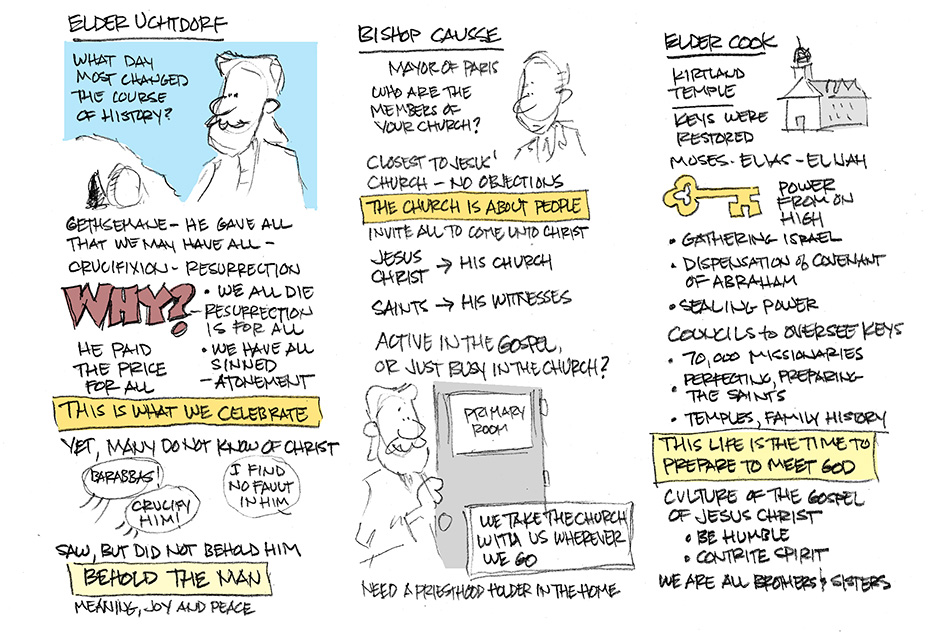 ELDER UCHTDORF
WHAT DAY
MOST CHANGED
THE COURSE
OF HISTORY?
GETHSEMANE - HE GAVE ALL
THAT WE MAY HAVE ALL -
CRUCIFIXION - RESURRECTION
WHY?
• WE ALL DIE
- RESURRECTION
IS FOR ALL
HE PAID
THE PRICE
FOR ALL
• WE HAVE ALL
SINNED
- ATONEMENT
THIS IS WHAT WE CELEBRATE
YET, MANY DO NOT KNOW OF CHRIST
BARABBAS!
CRUCIFY
HIM!
I FIND
NO FAULT
IN HIM
SAW, BUT DID NOT BEHOLD HIM
BEHOLD THE MAN
MEANING, JOY AND PEACE
BISHOP CAUSSE
MAYOR OF PARIS
WHO ARE THE
MEMBERS OF
YOUR CHURCH?
CLOSEST TO JESUS'
CHURCH - NO OBJECTIONS
THE CHURCH IS ABOUT PEOPLE
INVITE ALL TO COME UNTO CHRIST
JESUS
CHRIST → HIS CHURCH
SAINTS → HIS WITNESSES
ACTIVE IN THE GOSPEL,
OR JUST BUSY IN THE CHURCH?
PRIMARY
ROOM
WE TAKE THE CHURCH
WITH US WHEREVER
WE GO
NEED A PRIESTHOOD HOLDER IN THE HOME
ELDER COOK
KIRTLAND
TEMPLE
KEYS WERE
RESTORED
MOSES - ELIAS - ELIJAH
POWER
FROM ON
HIGH
• GATHERING ISRAEL
• DISPENSATION of COVENANT
OF ABRAHAM
• SEALING POWER
COUNCILS to OVERSEE KEYS
• 70,000 MISSIONARIES
• PERFECTING, PREPARING
THE SAINTS
• TEMPLES, FAMILY HISTORY
THIS LIFE IS THE TIME TO
PREPARE TO MEET GOD
CULTURE OF THE GOSPEL
OF JESUS CHRIST
• BE HUMBLE
• CONTRITE SPIRIT
WE ARE ALL BROTHERS & SISTERS